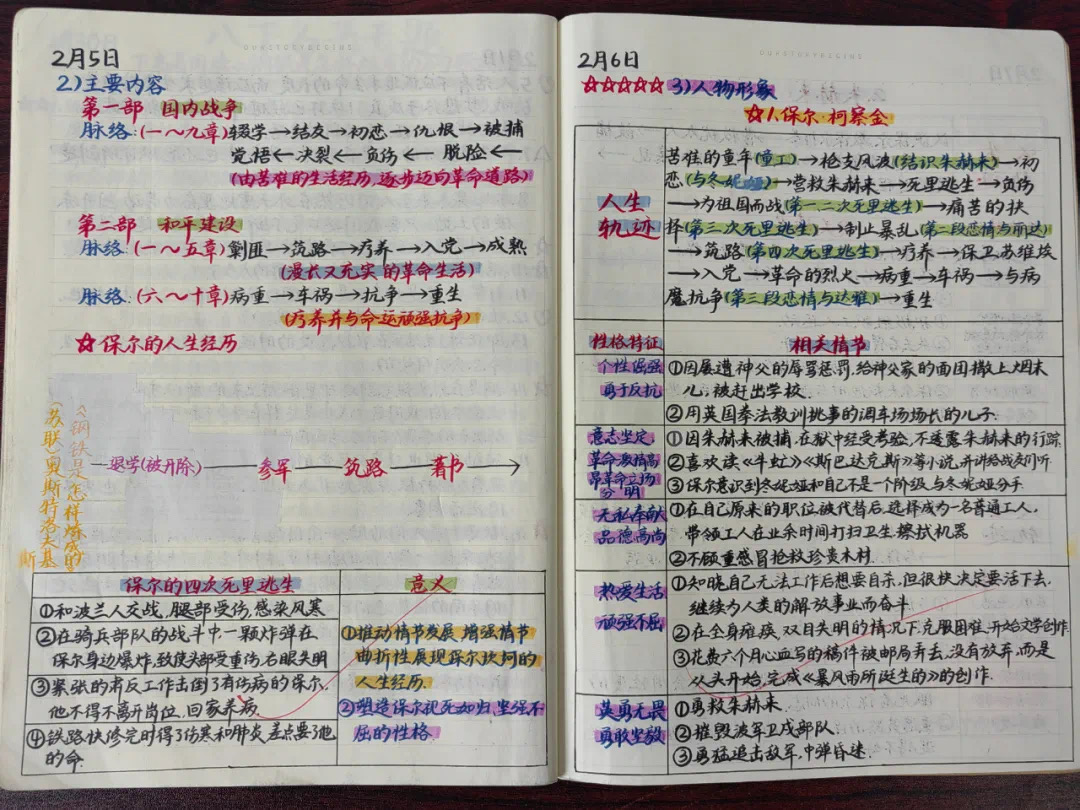 2月5日
2)主要内容
第一部 国内战争
脉络:(一~九章)辍学→结友→初恋→仇恨→被捕
觉悟←决裂←负伤← 脱险←
(由苦难的生活经历,逐步迈向革命道路)
第二部 和平建设
脉络:(一~五章)剿匪→筑路→疗养→入党→成熟
(漫长又充实的革命生活)
脉络:(六~十章)病重→车祸→抗争→重生
(疗养并与命运顽强抗争)
☆保尔的人生经历
退学(被开除)——参军——筑路——著书→
《钢铁是怎样炼成的》
苏联)奥斯特洛夫基
斯
保尔的四次死里逃生
意义
①和波兰人交战,腿部受伤,感染风寒
②在骑兵部队的战斗中,一颗炸弹在
保尔身边爆炸,致使头部受重伤,右眼失明
③紧张的肃反工作击倒了有伤病的保尔,
他不得不离开岗位,回家养病
④铁路快修完时得了伤寒和肺炎差点要了他
的命.
①推动情节发展,增强情节
曲折性展现保尔坎坷的
人生经历.
②塑造保尔视死如归,坚强不
屈的性格.
OURSTORYBEGINS
2月6日
☆☆☆☆☆3)人物形象
☆1.保尔·柯察金
人生
轨迹
苦难的童年(童工)→枪支风波(结识朱赫来)→初
恋(与冬妮娅)→营救朱赫来→死里逃生→负伤
→为祖国而战(第一.二次死里逃生)→痛苦的抉
择(第三次死里逃生)→制止暴乱(第二段恋情与丽达)
→筑路(第四次死里逃生)→疗养→保卫苏维埃
→入党→革命的烈火→病重→车祸→与病
魔抗争(第三段恋情与达雅)→重生
性格特征
相关情节
个性倔强
勇于反抗
①因屡遭神父的辱骂惩罚,给神父家的面团撒上烟末
儿,被赶出学校.
②用英国拳法教训挑事的调车场场长的儿子.
意志坚定
革命激情高
昂革命立场
分明
①因朱赫来被捕,在狱中经受考验,不透露朱赫来的行踪
②喜欢读《牛虻》《斯巴达克斯》等小说,并讲给战友们听
③保尔意识到冬妮娅和自己不是一个阶级,与冬妮娅分手.
无私奉献
品德高尚
①在自己原来的职位被代替后,选择成为一名普通工人,
带领工人在业余时间打扫卫生,擦拭机器
②不顾重感冒抢救珍贵木材.
热爱生活
顽强不屈
①知晓自己无法工作后想要自杀,但很快决定要活下去,
继续为人类的解放事业而奋斗.
②在全身瘫痪,双目失明的情况下,克服困难,开始文学创作.
③花费六个月心血写的稿件被邮局弄丢,没有放弃,而是
从头开始,完成《暴风雨所诞生的》的创作.
英勇无畏
勇敢坐敌
①勇救朱赫来.
②摧毁波军卫戍部队.
③勇猛追击敌军,中弹昏迷.